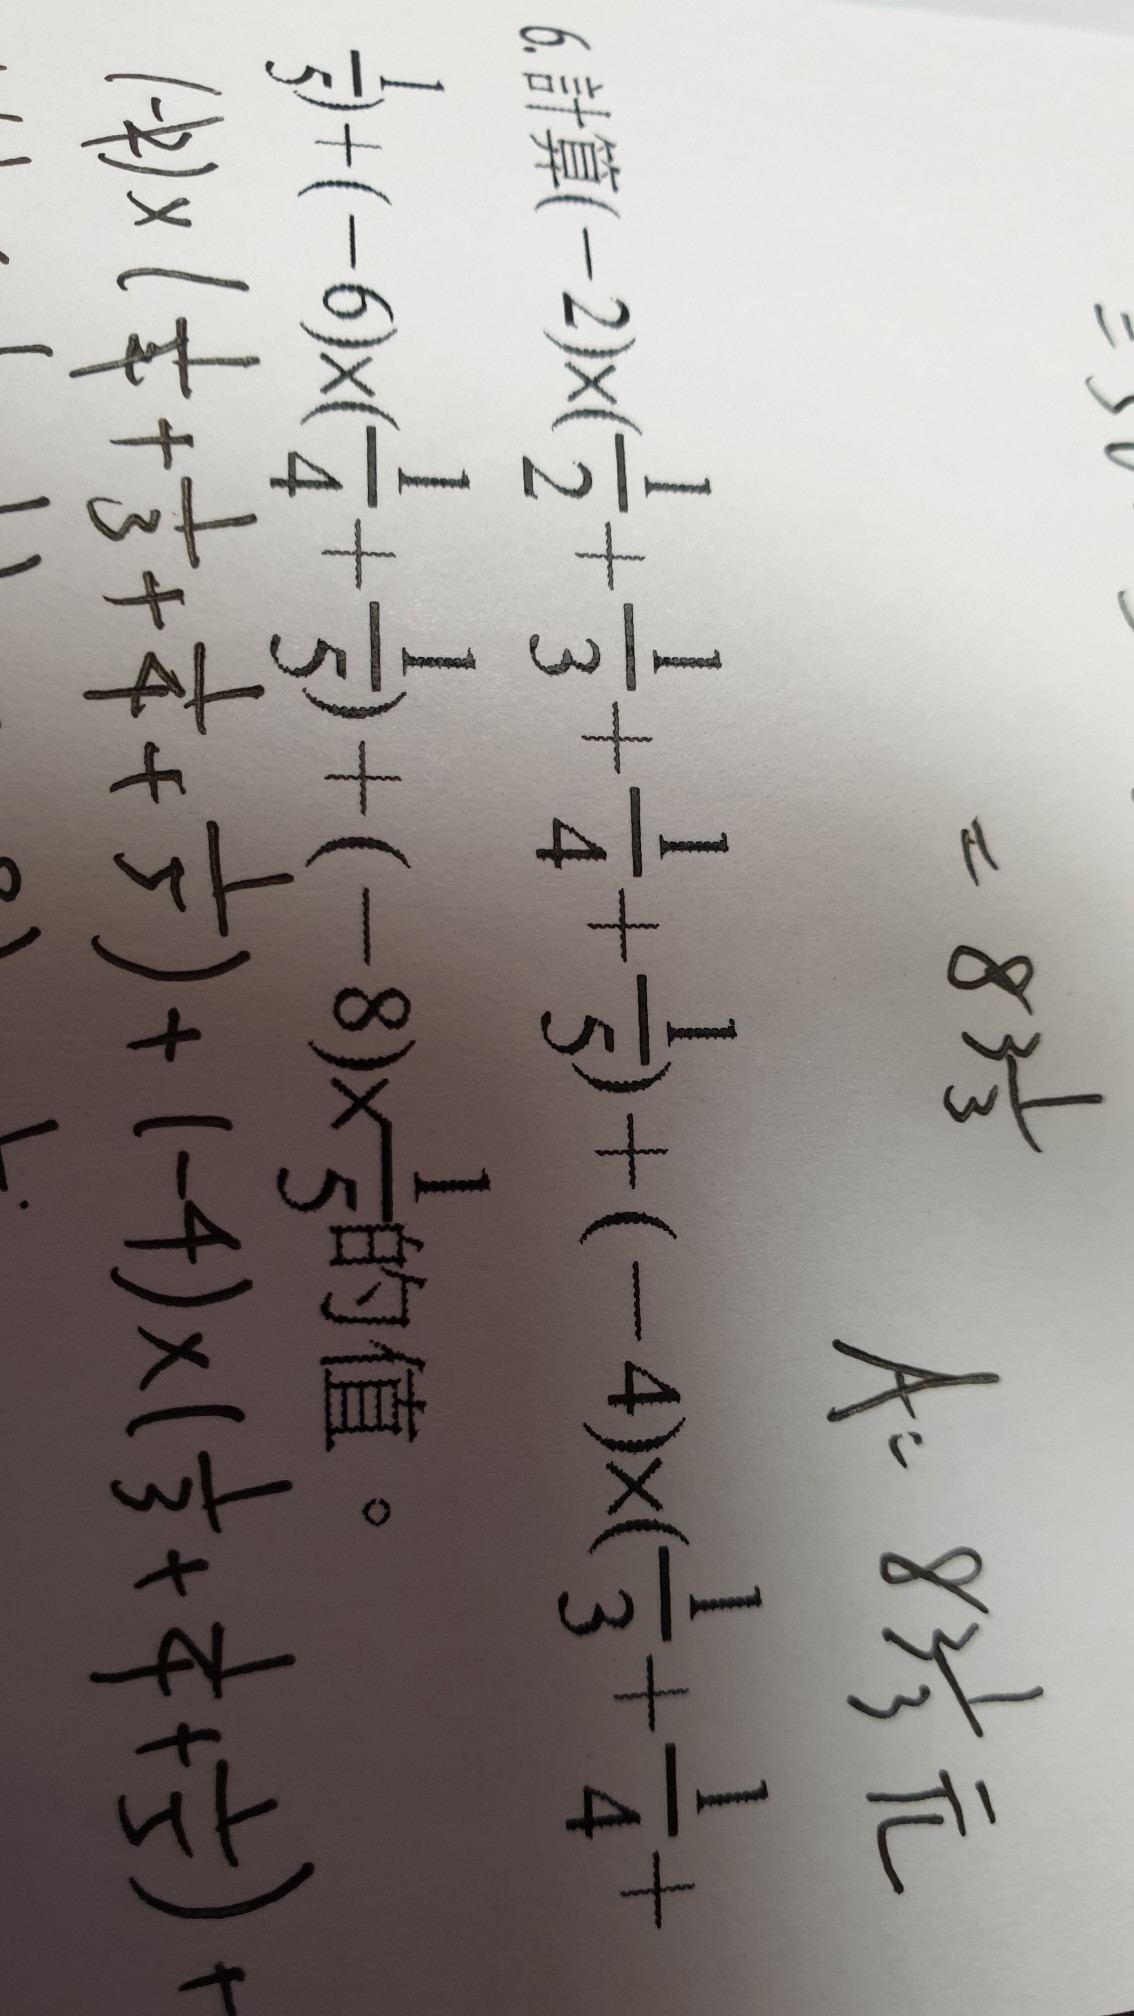 = 8 1/3
A: 8 1/3 元
6. 計算(-2)×(1/2+1/3+1/4+1/5)+(-4)×(1/3+1/4+
1/5)+(-6)×(1/4+1/5)+(-8)×1/5的值。
(-2)×(1/2+1/3+1/4+1/5)+(-4)×(1/3+1/4+1/5)+